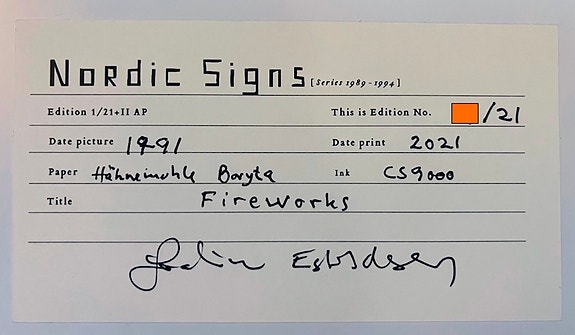 Nordic Signs [Series 1989-1994]
Edition 1/21+II AP This is Edition No. /21
Date picture 1991 Date print 2021
Paper Hähnemühle Baryta Ink CS9000
Title Fireworks